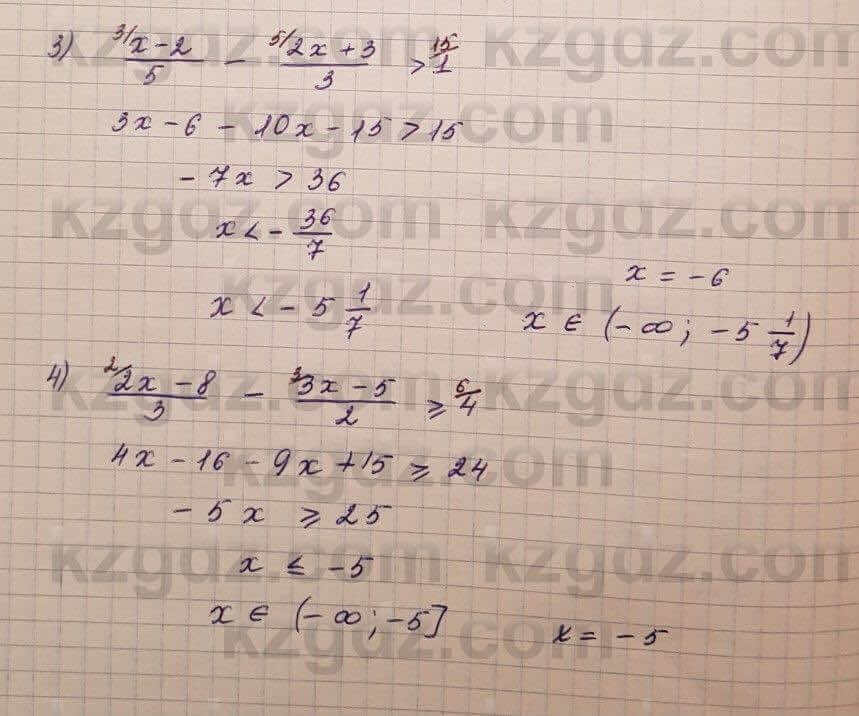 3) ³⁄ x-2 / 5 - ⁵⁄ 2x+3 / 3 > ¹⁵⁄ 1
3x - 6 - 10x - 15 > 15
- 7x > 36
x < - 36/7
x = -6
x < - 5 1/7
x ∈ (-∞; -5 1/7)
4) ²⁄ 2x - 8 / 3 - ³⁄ 3x - 5 / 2 ⩾ ⁶⁄ 4
4x - 16 - 9x + 15 ⩾ 24
- 5x ⩾ 25
x ⩽ -5
x ∈ (-∞; -5]
x = -5
kzgdz.com kzgdz.com
kzgdz.com
kzgdz.com kzgdz.com
kzgdz.com
kzgdz.com kzgdz.com
kzgdz.com
kzgdz.com kzgdz.com
kzgdz.com